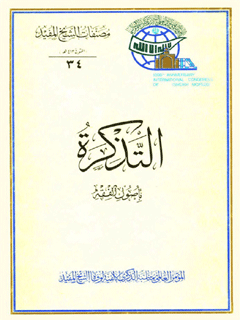 مصنفات الشيخ المفيد
٣٤
INTERNATIONAL CONGRESS
OF SHEIKH MOFEED
التذكرة
بأصول الفقه
المؤتمر العالمي بمناسبة الذكرى الألفية لوفاة الشيخ المفيد